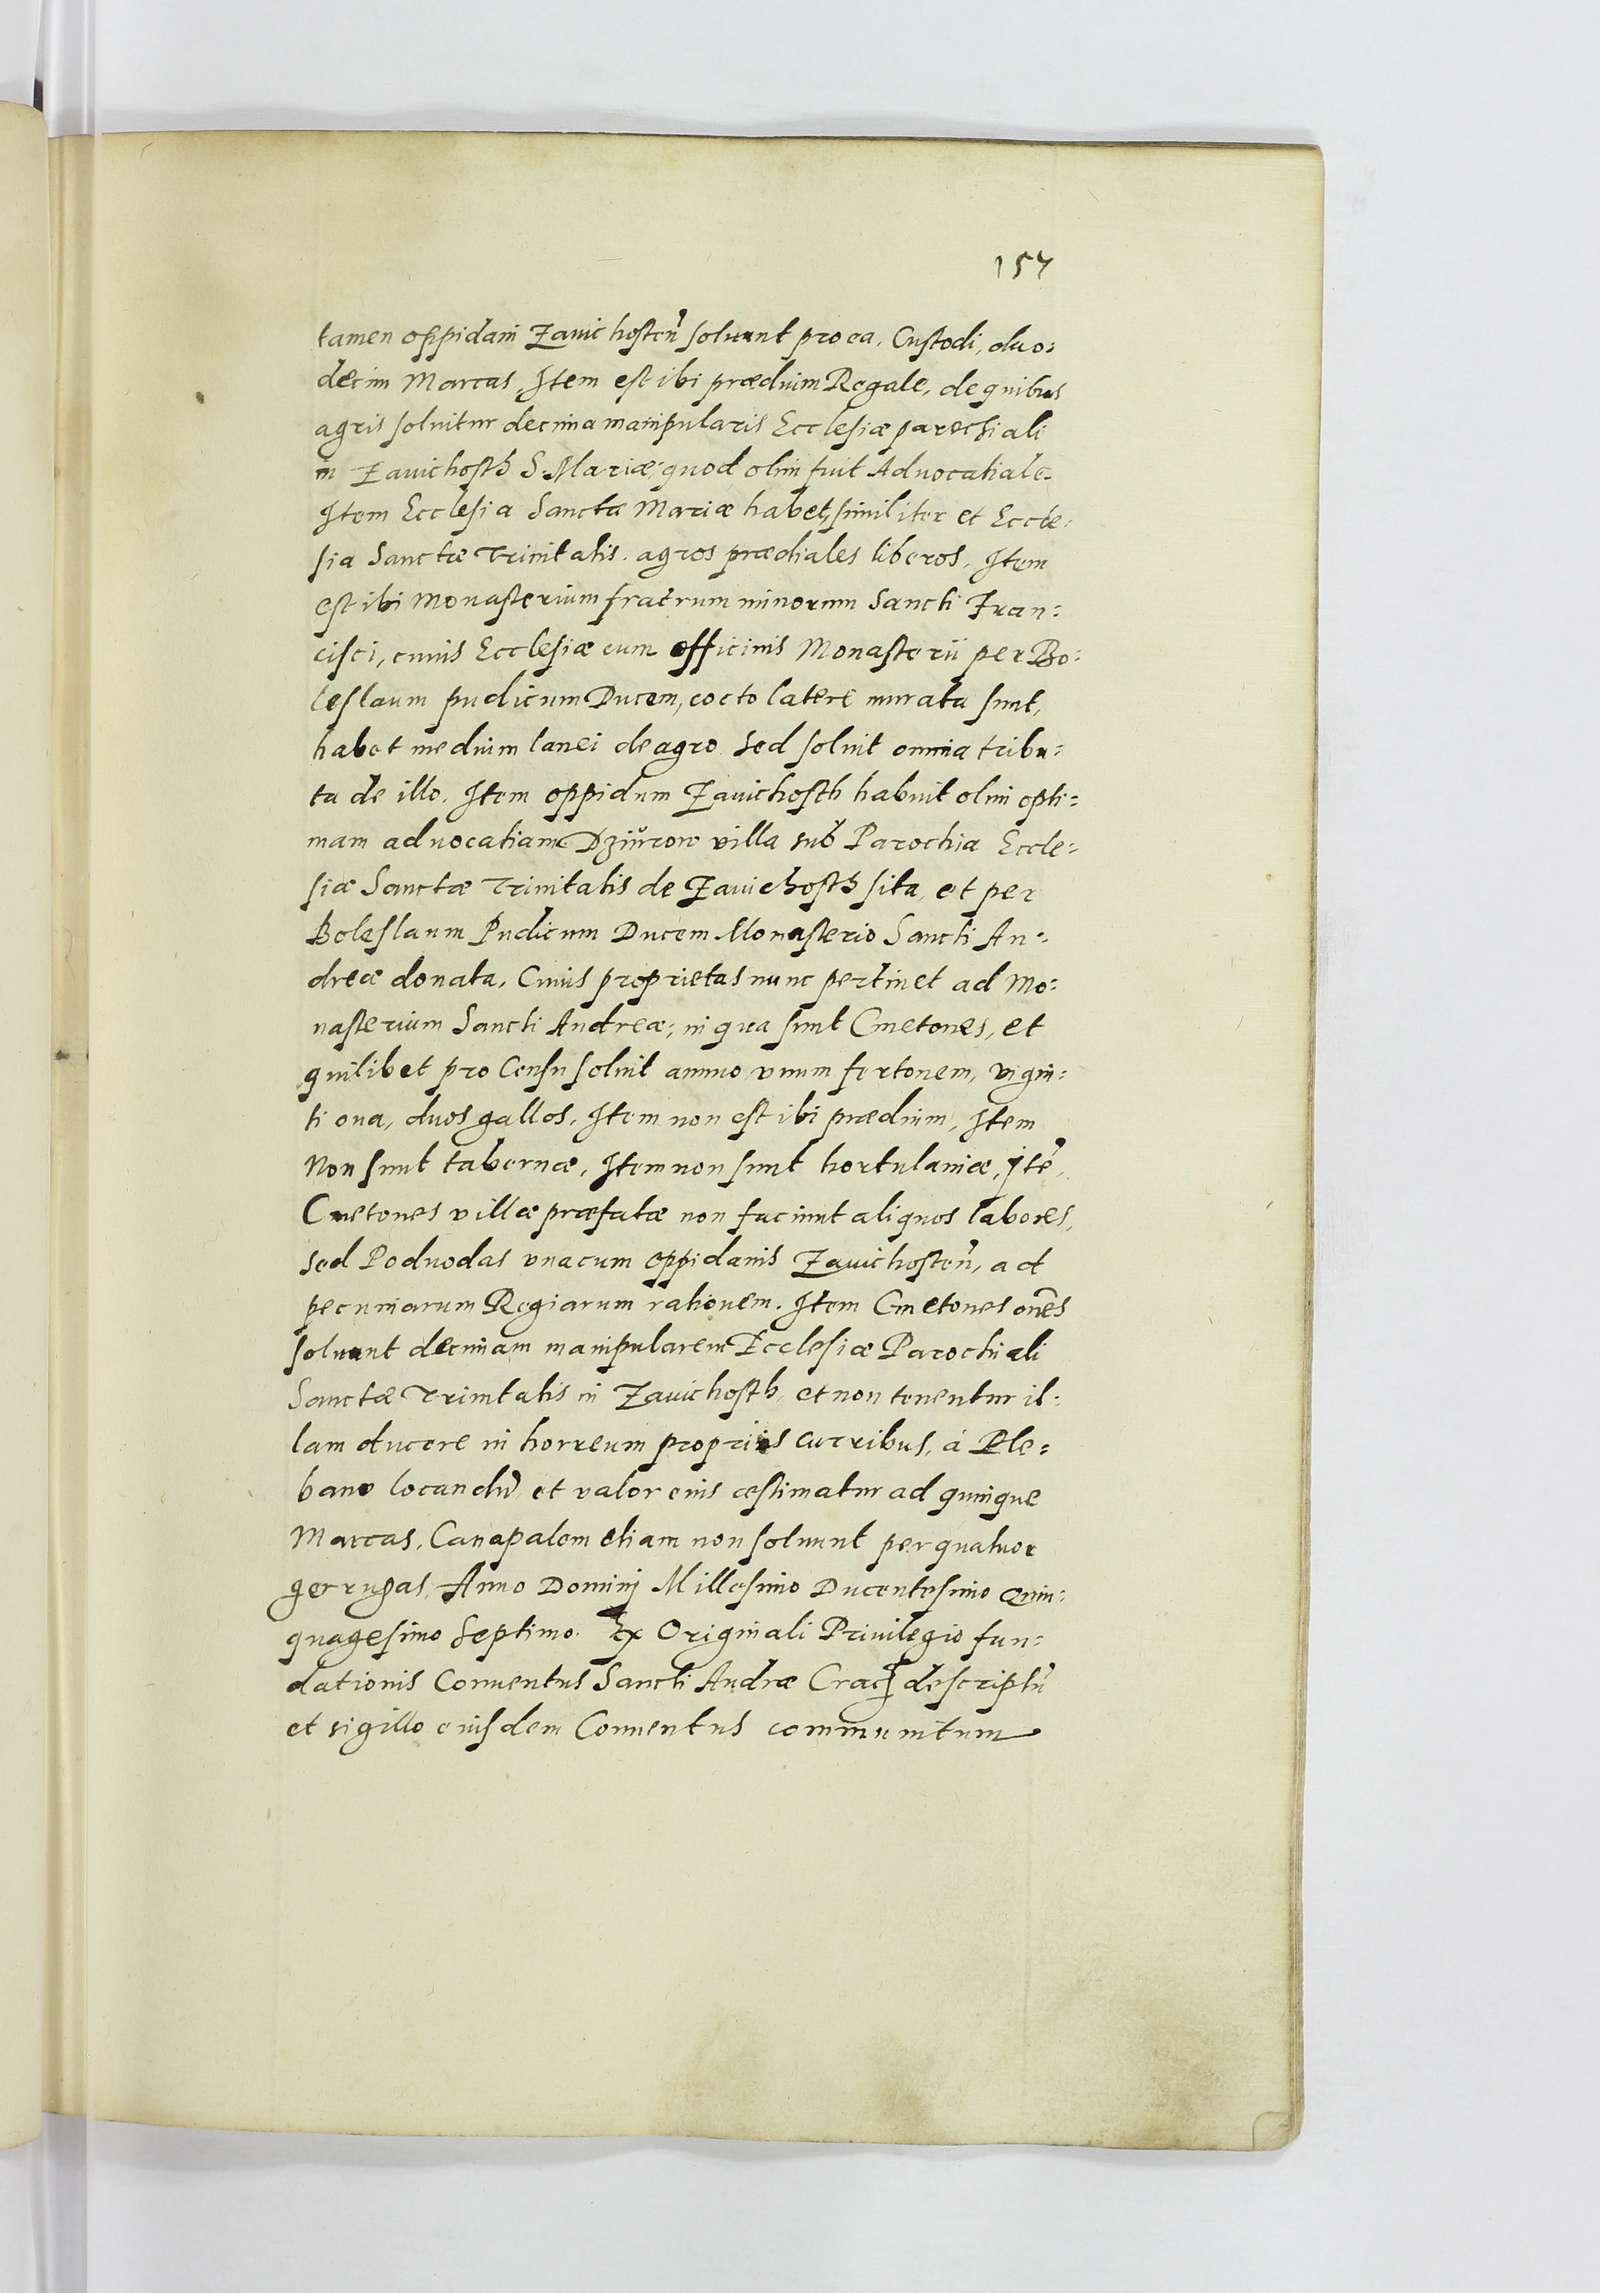 157
tamen oppidani Zavichosteñ soluunt pro ea, Custodi, duo:
decim Marcas, Item est ibi prædium Regale, de quibus
agris soluitur decima manipularis Ecclesiæ parochiali
in Zavichosth S. Mariæ, quod olim fuit Aduocatiale.
Item Ecclesia Sanctæ Mariæ habet, similiter et Eccle:
sia Sanctæ Trinitatis agros prædiales liberos, Item
est ibi Monasterium fratrum minorum Sancti Fran:
cisci, cuius Ecclesiæ cum officinis Monasterii per Bo:
leslaum pudicum Ducem, cocto latere murata sunt,
habet medium lanei de agro sed soluit omnia tribu:
ta de illo. Item oppidum Zavichosth habuit olim opti:
mam aduocatiam Dziŭrow villa sub Parochia Eccle:
siæ Sanctæ Trinitatis de Zavichosth sita, et per
Boleslaum Pudicum Ducem Monasterio Sancti An:
dreæ donata, Cuius proprietas nunc pertinet ad Mo:
nasterium Sancti Andreæ, in qua sunt Cmetones, et
quilibet pro Censu soluit annuo vnum fertonem, vigin:
ti oua, duos gallos, Item non est ibi prædium, Item
Non sunt tabernæ, Item non sunt hortulaniæ, jtẽ
Cmetones villæ præfatæ non faciunt aliquos labores,
sed Poduodas vna cum oppidanis Zavichosteñ, ad
pecuniarum Regiarum rationem. Item Cmetones oñes
soluunt decimam manipularem Ecclesiæ Parochiali
Sanctæ Trinitatis in Zavichosth, et non tenentur il:
lam ducere in horreum proprijs curribus, á Ple:
bano locandũ et valor eius æstimatur ad quinque
Marcas, Canapalem etiam non soluunt per quatuor
gerrugas, Anno Dominj Millesimo Ducentesimo Quin:
quagesimo Septimo. Ex Originali Priuilegio fun:
dationis Conuentus Sancti Andræ Crac: descriptũ
et sigillo eiusdem Conuentus communitum